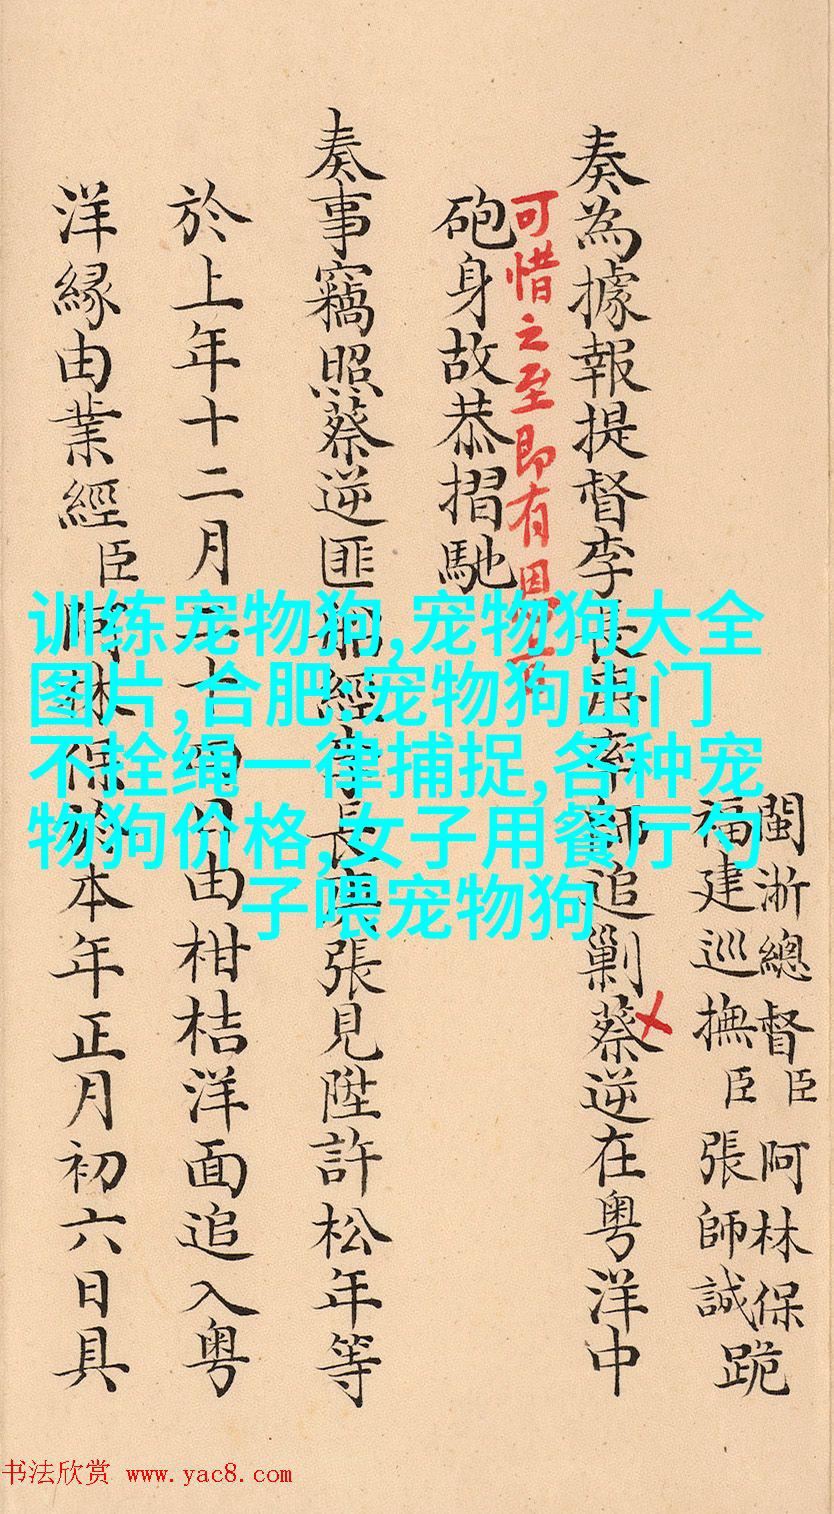 閩浙總督臣阿林保
福建巡撫臣張師誠
跪
奏為據報提督李長庚率師追剿蔡逆在粵洋中
可惜之至即有恩
砲身故恭摺馳
奏事竊照蔡逆匪船經李長庚張見陞許松年等
於上年十二月二十四日由柑桔洋面追入粵
洋緣由業經臣阿林保於本年正月初六日具
训练宠物狗,宠物狗大全
图片,合肥:宠物狗出门
不拴绳一律捕捉,各种宠
物狗价格,女子用餐厅勺
子喂宠物狗
书法欣赏 www.yac8.com